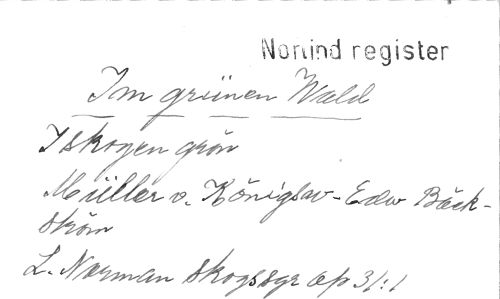 Norlind register
Im grünen Wald
I skogen grön
Müller v. Königsw- Edw Bäck-
ström
L. Norman Skogssgr op 31:1